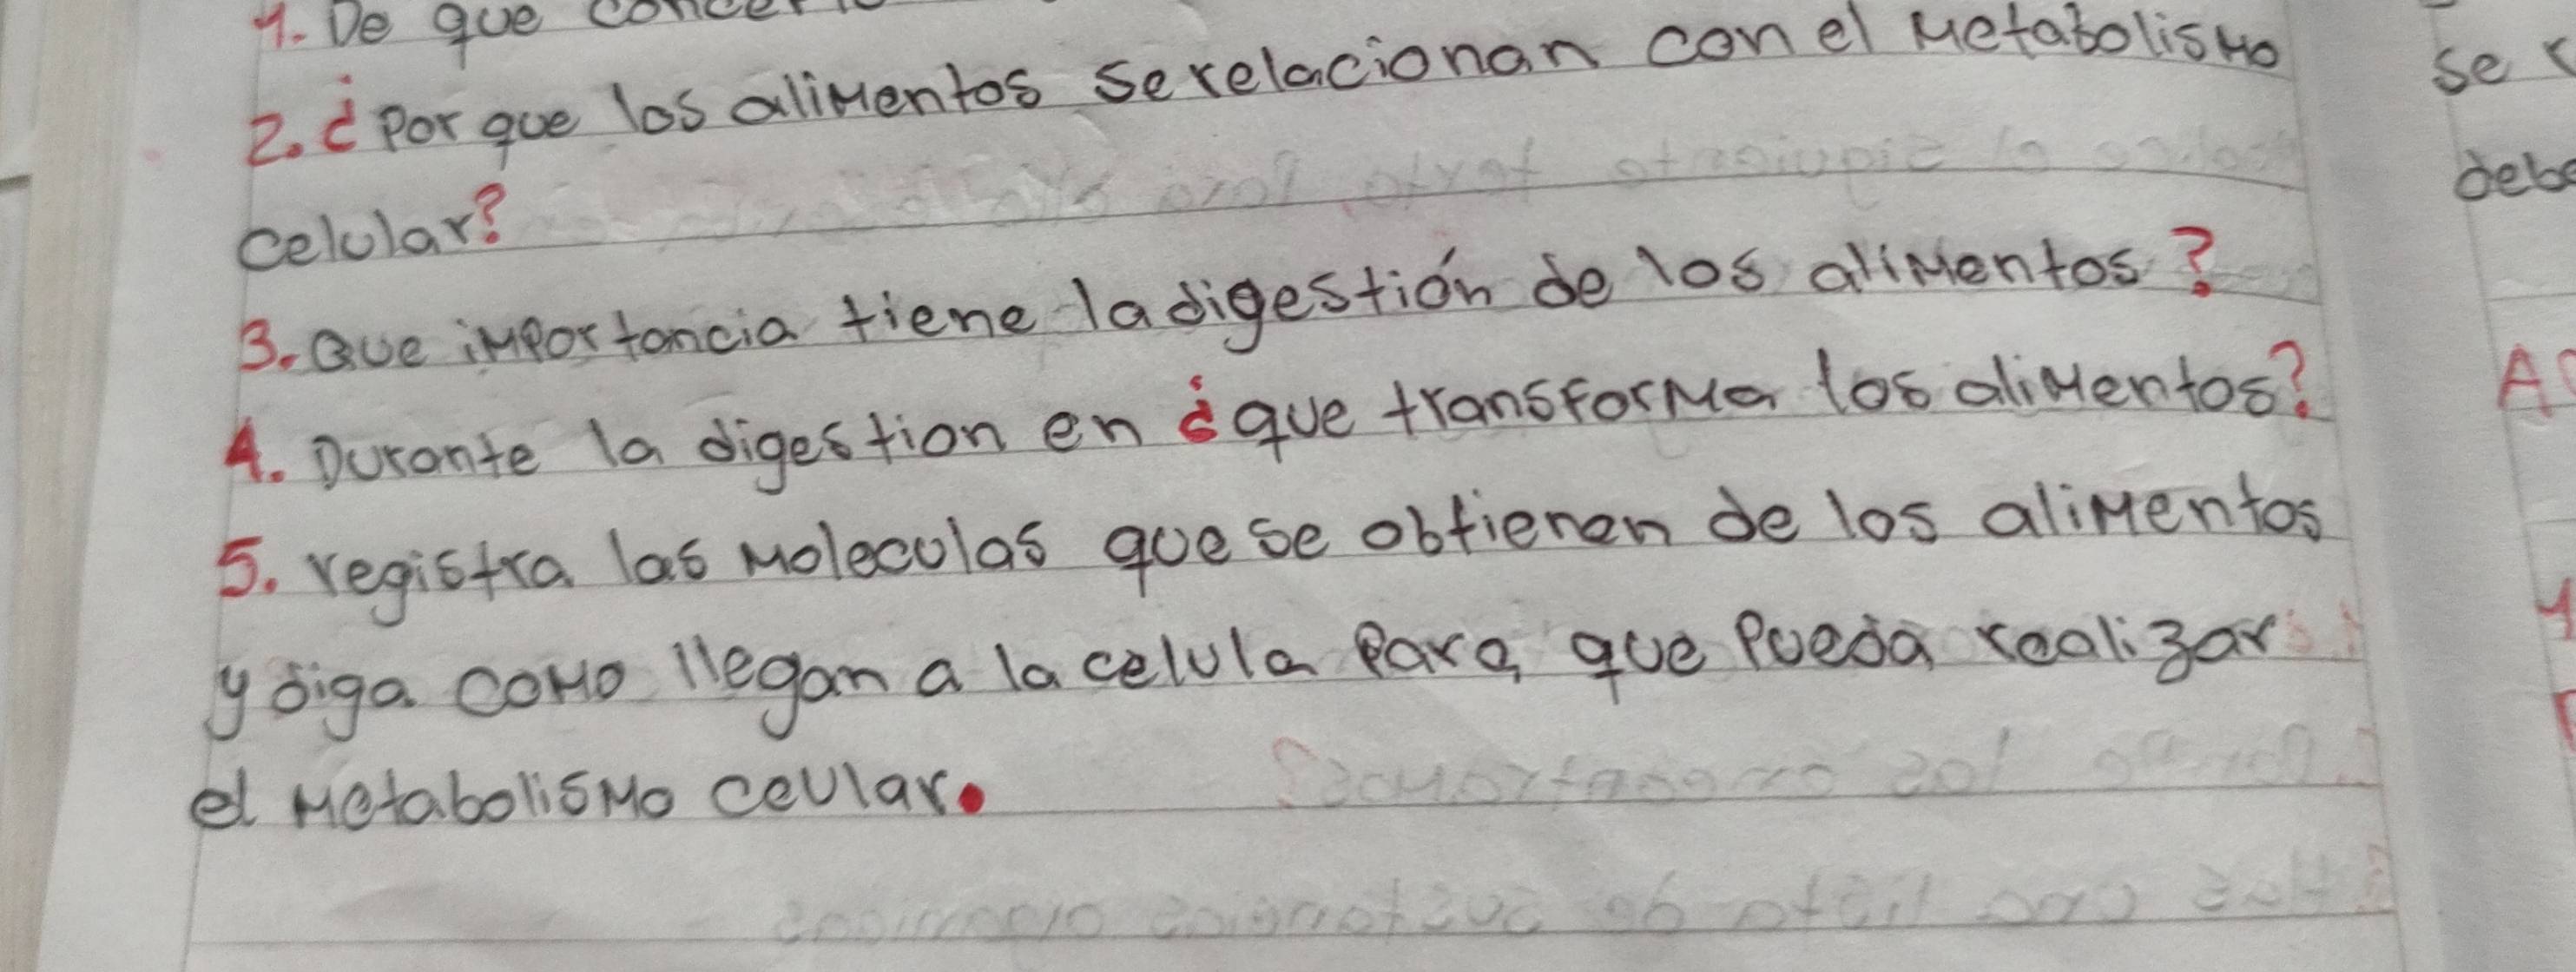 1. De que
2. ¿Por que los alimentos se relacionan con el Metabolismo
celular?
3. Que importancia tiene la digestión de los alimentos?
4. Durante la digestion en ¿que transforma los alimentos?
5. registra las Moleculas que se obtienen de los alimentos
y diga como llegan a la celula Para que Pueda realizar
el Metabolismo ceular.
se